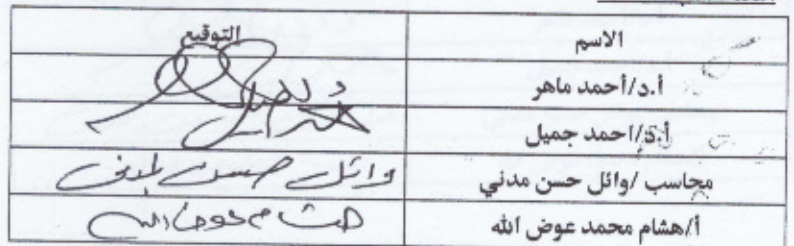 الاسم التوقيع
أ.د/أحمد ماهر
أ.د/احمد جميل
محاسب /وائل حسن مدني وائل حسن مدني
أ/هشام محمد عوض الله هشام عوض الله